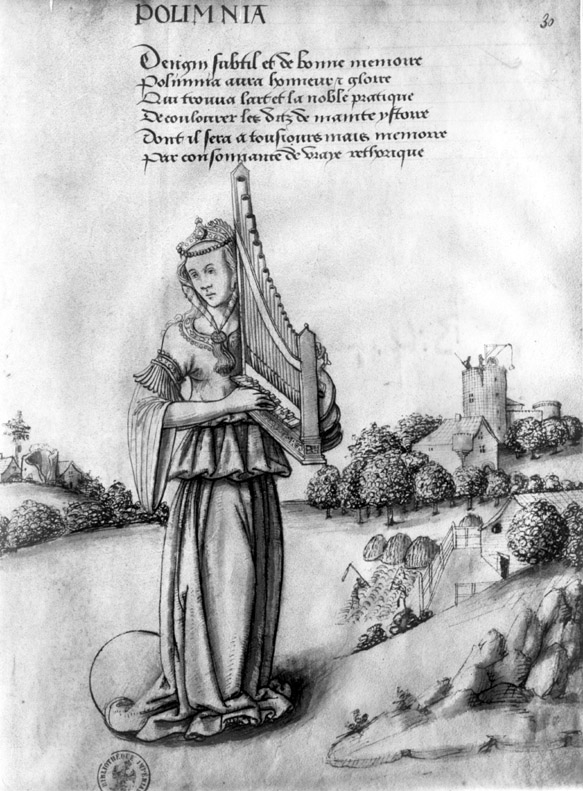 POLIMNIA
30
Dengin subtil et de bonne memoire
Polimnia aura honneur & gloire
Qui trouva lart et la noble pratique
De coulourer les ditz de mainte ystoire
Dont il sera a tousiours mais memoire
Par consonnante de vraye rethorique
BIBLIOTHEQUE IMPERIA